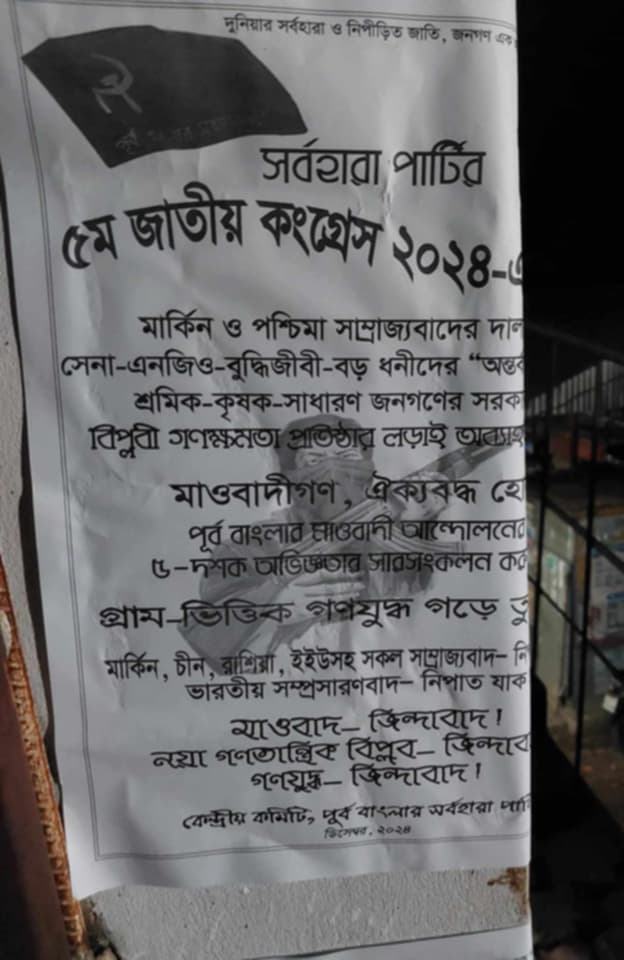 দুনিয়ার সর্বহারা ও নিপীড়িত জাতি, জনগণ এক
সর্বহারা পার্টির
৫ম জাতীয় কংগ্রেস ২০২৪-এ
মার্কিন ও পশ্চিমা সাম্রাজ্যবাদের দাল
সেনা-এনজিও-বুদ্ধিজীবী-বড় ধনীদের “অন্তর্ব
শ্রমিক-কৃষক-সাধারণ জনগণের সরকা
বিপ্লবী গণক্ষমতা প্রতিষ্ঠার লড়াই অব্যাহ
মাওবাদীগণ, ঐক্যবদ্ধ হো
পূর্ব বাংলার মাওবাদী আন্দোলনের
৫-দশক অভিজ্ঞতার সারসংকলন কর
গ্রাম-ভিত্তিক গণযুদ্ধ গড়ে তু
মার্কিন, চীন, রাশিয়া, ইইউসহ সকল সাম্রাজ্যবাদ– নি
ভারতীয় সম্প্রসারণবাদ– নিপাত যাক
মাওবাদ– জিন্দাবাদ!
নয়া গণতান্ত্রিক বিপ্লব– জিন্দাব
গণযুদ্ধ– জিন্দাবাদ!
কেন্দ্রীয় কমিটি, পূর্ব বাংলার সর্বহারা পার্টি
ডিসেম্বর, ২০২৪